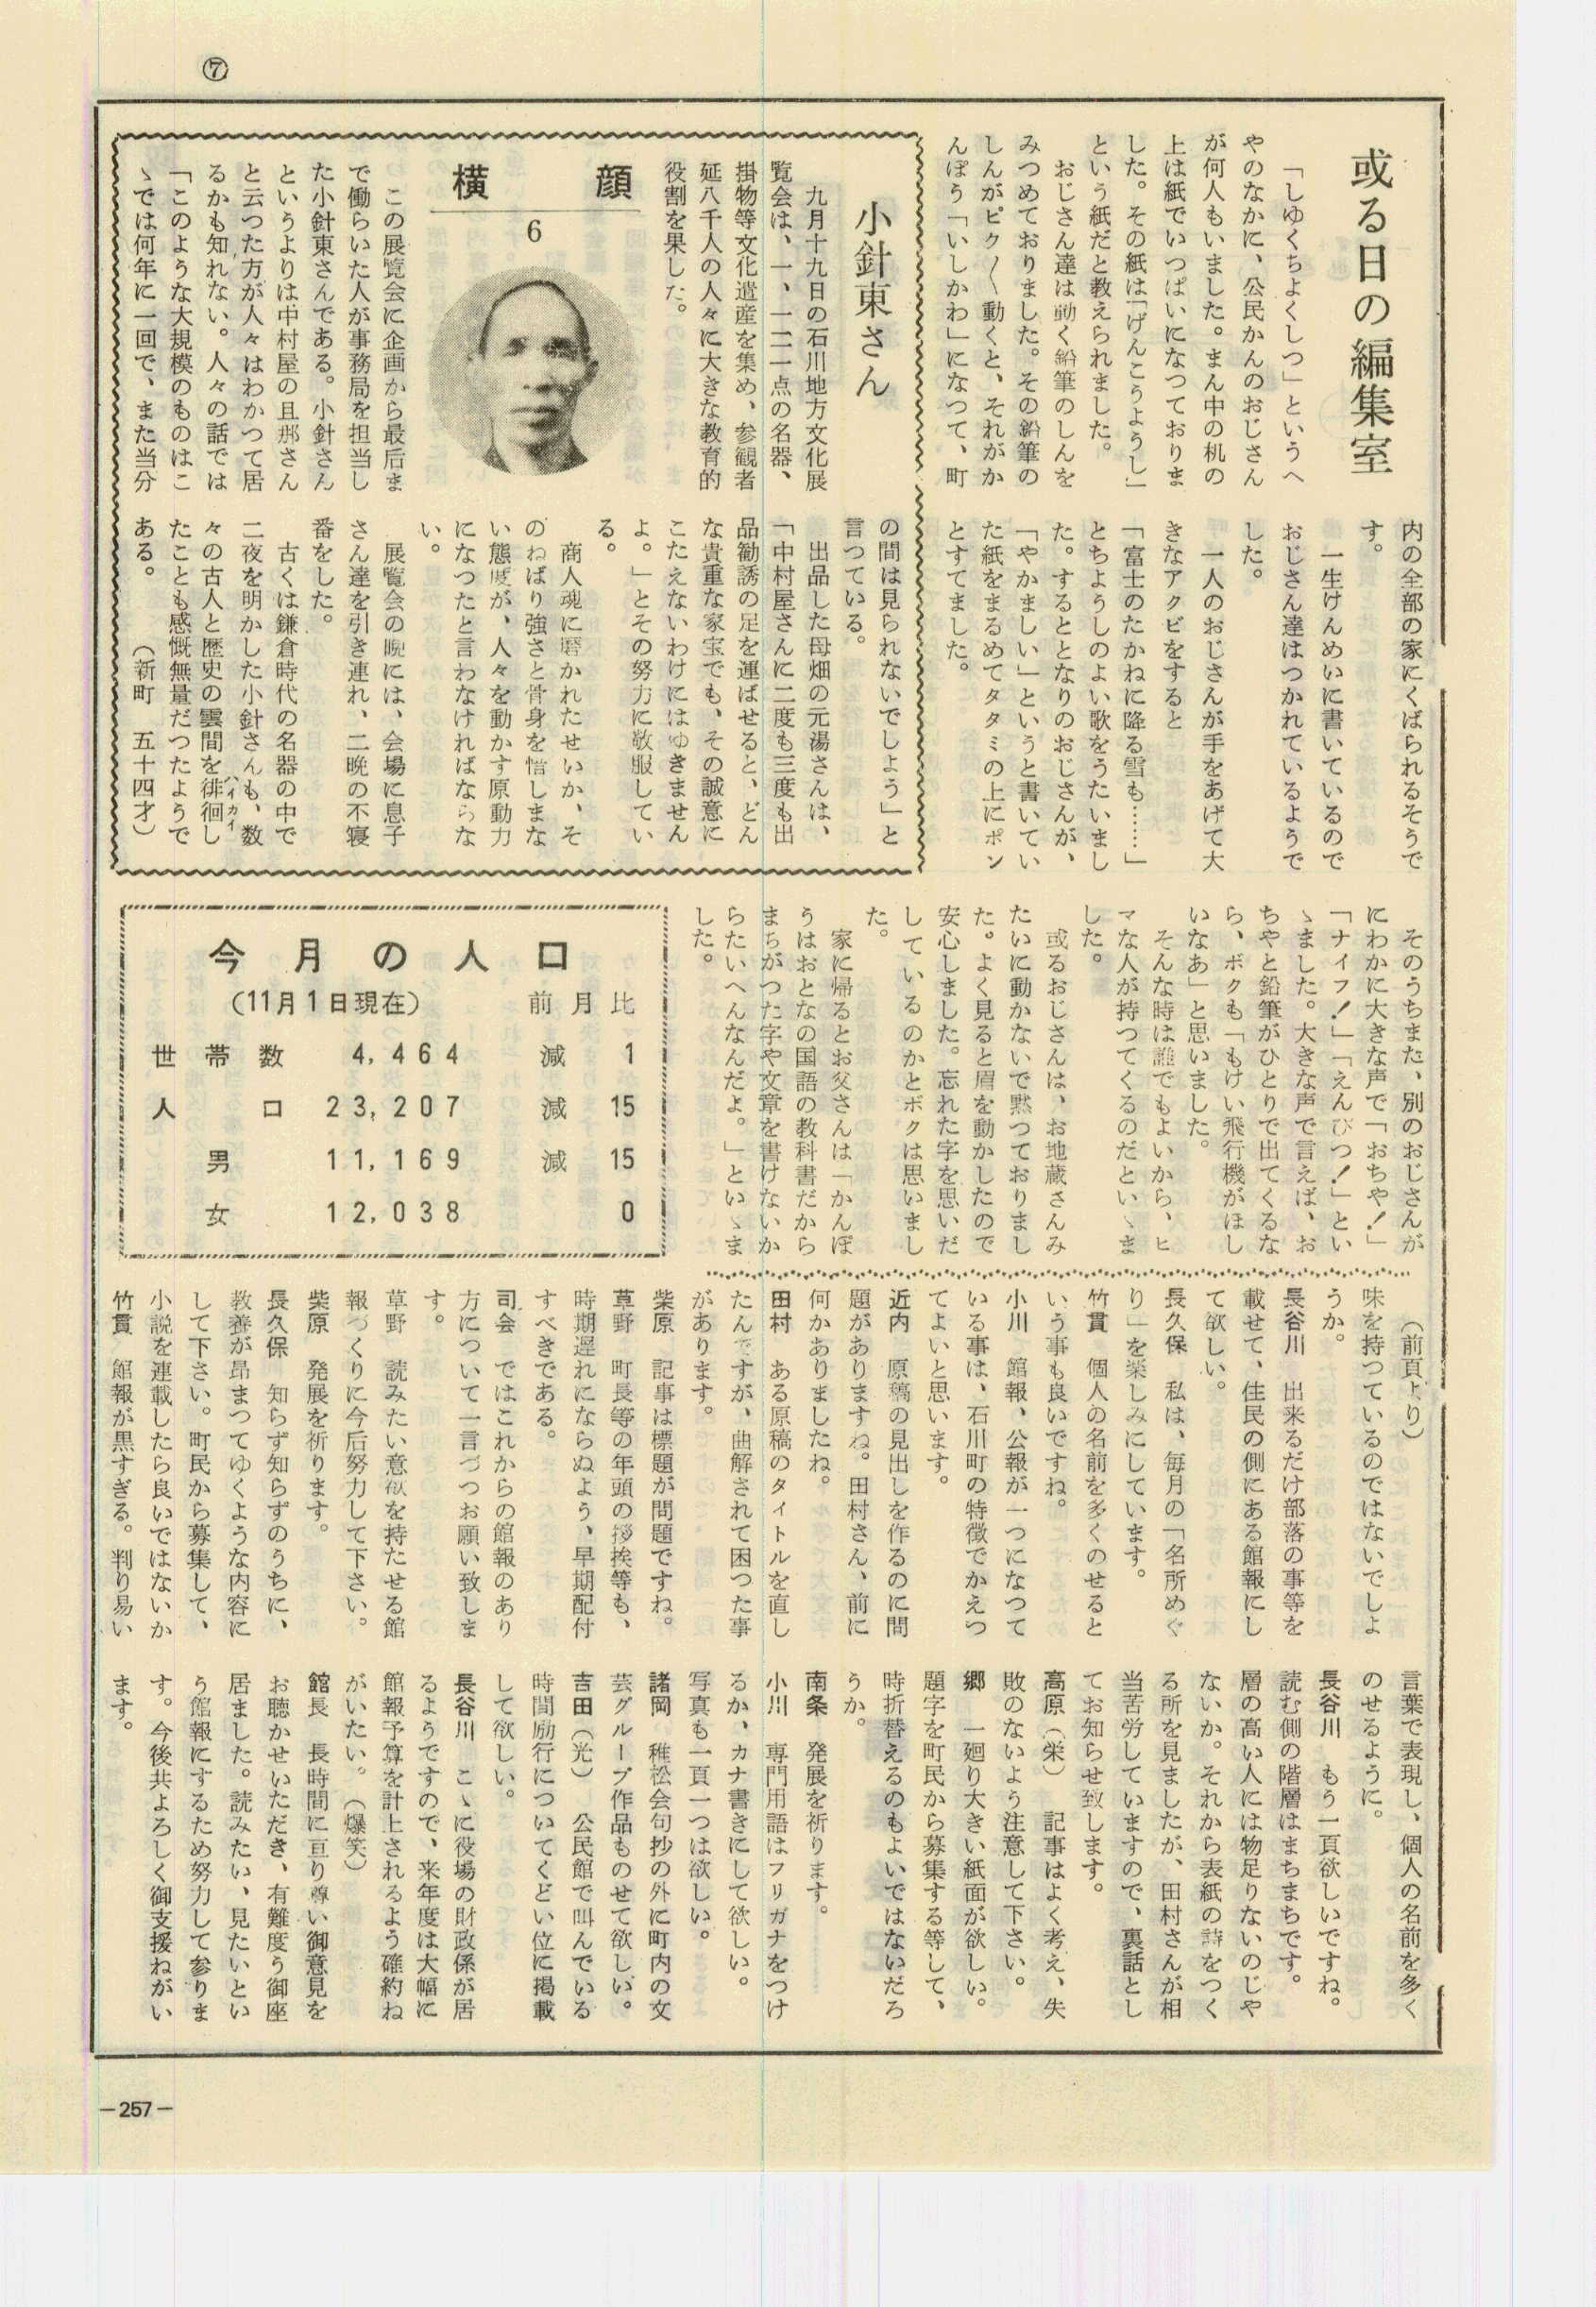 ⑦
或る日の編集室
「しゆくちよくしつ」というへ
やのなかに、公民かんのおじさん
が何人もいました。まん中の机の
上は紙でいつぱいになつておりま
した。その紙は「げんこうようし」
という紙だと教えられました。
おじさん達は動く鉛筆のしんを
みつめておりました。その鉛筆の
しんがピク〱動くと、それがか
んぽう「いしかわ」になつて、町
内の全部の家にくばられるそうで
す。
一生けんめいに書いているので
おじさん達はつかれているようで
した。
一人のおじさんが手をあげて大
きなアクビをすると
「富士のたかねに降る雪も……」
とちようしのよい歌をうたいまし
た。するととなりのおじさんが、
「やかましい」というと書いてい
た紙をまるめてタタミの上にポン
とすてました。
そのうちまた、別のおじさんが
にわかに大きな声で「おちや！」
「ナイフ！」「えんぴつ！」とい
ゝました。大きな声で言えば、お
ちやと鉛筆がひとりで出てくるな
ら、ボクも「もけい飛行機がほし
いなあ」と思いました。
そんな時は誰でもよいから、ヒ
マな人が持つてくるのだといゝま
した。
或るおじさんは、お地蔵さんみ
たいに動かないで黙つておりまし
た。よく見ると眉を動かしたので
安心しました。忘れた字を思いだ
しているのかとボクは思いまし
た。
家に帰るとお父さんは「かんぽ
うはおとなの国語の教科書だから
まちがつた字や文章を書けないか
らたいへんなんだよ。」といゝま
した。
横顔
6
小針東さん
九月十九日の石川地方文化展
覧会は、一、一二一点の名器、
掛物等文化遺産を集め、参観者
延八千人の人々に大きな教育的
役割を果した。
この展覧会に企画から最后ま
で働らいた人が事務局を担当し
た小針東さんである。小針さん
というよりは中村屋の且那さん
と云つた方が人々はわかつて居
るかも知れない。人々の話では
「このような大規模のものはこ
ゝでは何年に一回で、また当分
の間は見られないでしよう」と
言つている。
出品した母畑の元湯さんは、
「中村屋さんに二度も三度も出
品勧誘の足を運ばせると、どん
な貴重な家宝でも、その誠意に
こたえないわけにはゆきません
よ。」とその努力に敬服してい
る。
商人魂に磨かれたせいか、そ
のねばり強さと骨身を惜しまな
い態度が、人々を動かす原動力
になつたと言わなければならな
い。
展覧会の晩には、会場に息子
さん達を引き連れ、二晩の不寝
番をした。
古くは鎌倉時代の名器の中で
二夜を明かした小針さんも、数
々の古人と歴史の雲間を徘徊し
ハイカイ
たことも感慨無量だつたようで
ある。
（新町　五十四才）
今月の人口
（11月1日現在）　前月比
世帯数　4,464　減　1
人口　23,207　減　15
男　11,169　減　15
女　12,038　0
（前頁より）
味を持つているのではないでしよ
うか。
長谷川　出来るだけ部落の事等を
載せて、住民の側にある館報にし
て欲しい。
長久保　私は、毎月の「名所めぐ
り」を楽しみにしています。
竹貫　個人の名前を多くのせると
いう事も良いですね。
小川　館報、公報が一つになつて
いる事は、石川町の特徴でかえつ
てよいと思います。
近内　原稿の見出しを作るのに問
題がありますね。田村さん、前に
何かありましたね。
田村　ある原稿のタイトルを直し
たんですが、曲解されて困つた事
があります。
柴原　記事は標題が問題ですね。
草野　町長等の年頭の挨拶等も、
時期遅れにならぬよう、早期配付
すべきである。
司会　ではこれからの館報のあり
方について一言づつお願い致しま
す。
草野　読みたい意欲を持たせる館
報づくりに今后努力して下さい。
柴原　発展を祈ります。
長久保　知らず知らずのうちに、
教養が昂まつてゆくような内容に
して下さい。町民から募集して、
小説を連載したら良いではないか
竹貫　館報が黒すぎる。判り易い
言葉で表現し、個人の名前を多く
のせるように。
長谷川　もう一頁欲しいですね。
読む側の階層はまちまちです。
層の高い人には物足りないのじや
ないか。それから表紙の詩をつく
る所を見ましたが、田村さんが相
当苦労していますので、裏話とし
てお知らせ致します。
高原（栄）　記事はよく考え、失
敗のないよう注意して下さい。
郷　一廻り大きい紙面が欲しい。
題字を町民から募集する等して、
時折替えるのもよいではないだろ
うか。
南条　発展を祈ります。
小川　専門用語はフリガナをつけ
るか、カナ書きにして欲しい。
写真も一頁一つは欲しい。
諸岡　稚松会句抄の外に町内の文
芸グループ作品ものせて欲しい。
吉田（光）　公民館で叫んでいる
時間励行についてくどい位に掲載
して欲しい。
長谷川　こゝに役場の財政係が居
るようですので、来年度は大幅に
館報予算を計上されるよう確約ね
がいたい。（爆笑）
館長　長時間に亘り尊い御意見を
お聴かせいただき、有難度う御座
居ました。読みたい、見たいとい
う館報にするため努力して参りま
す。今後共よろしく御支援ねがい
ます。
－257－